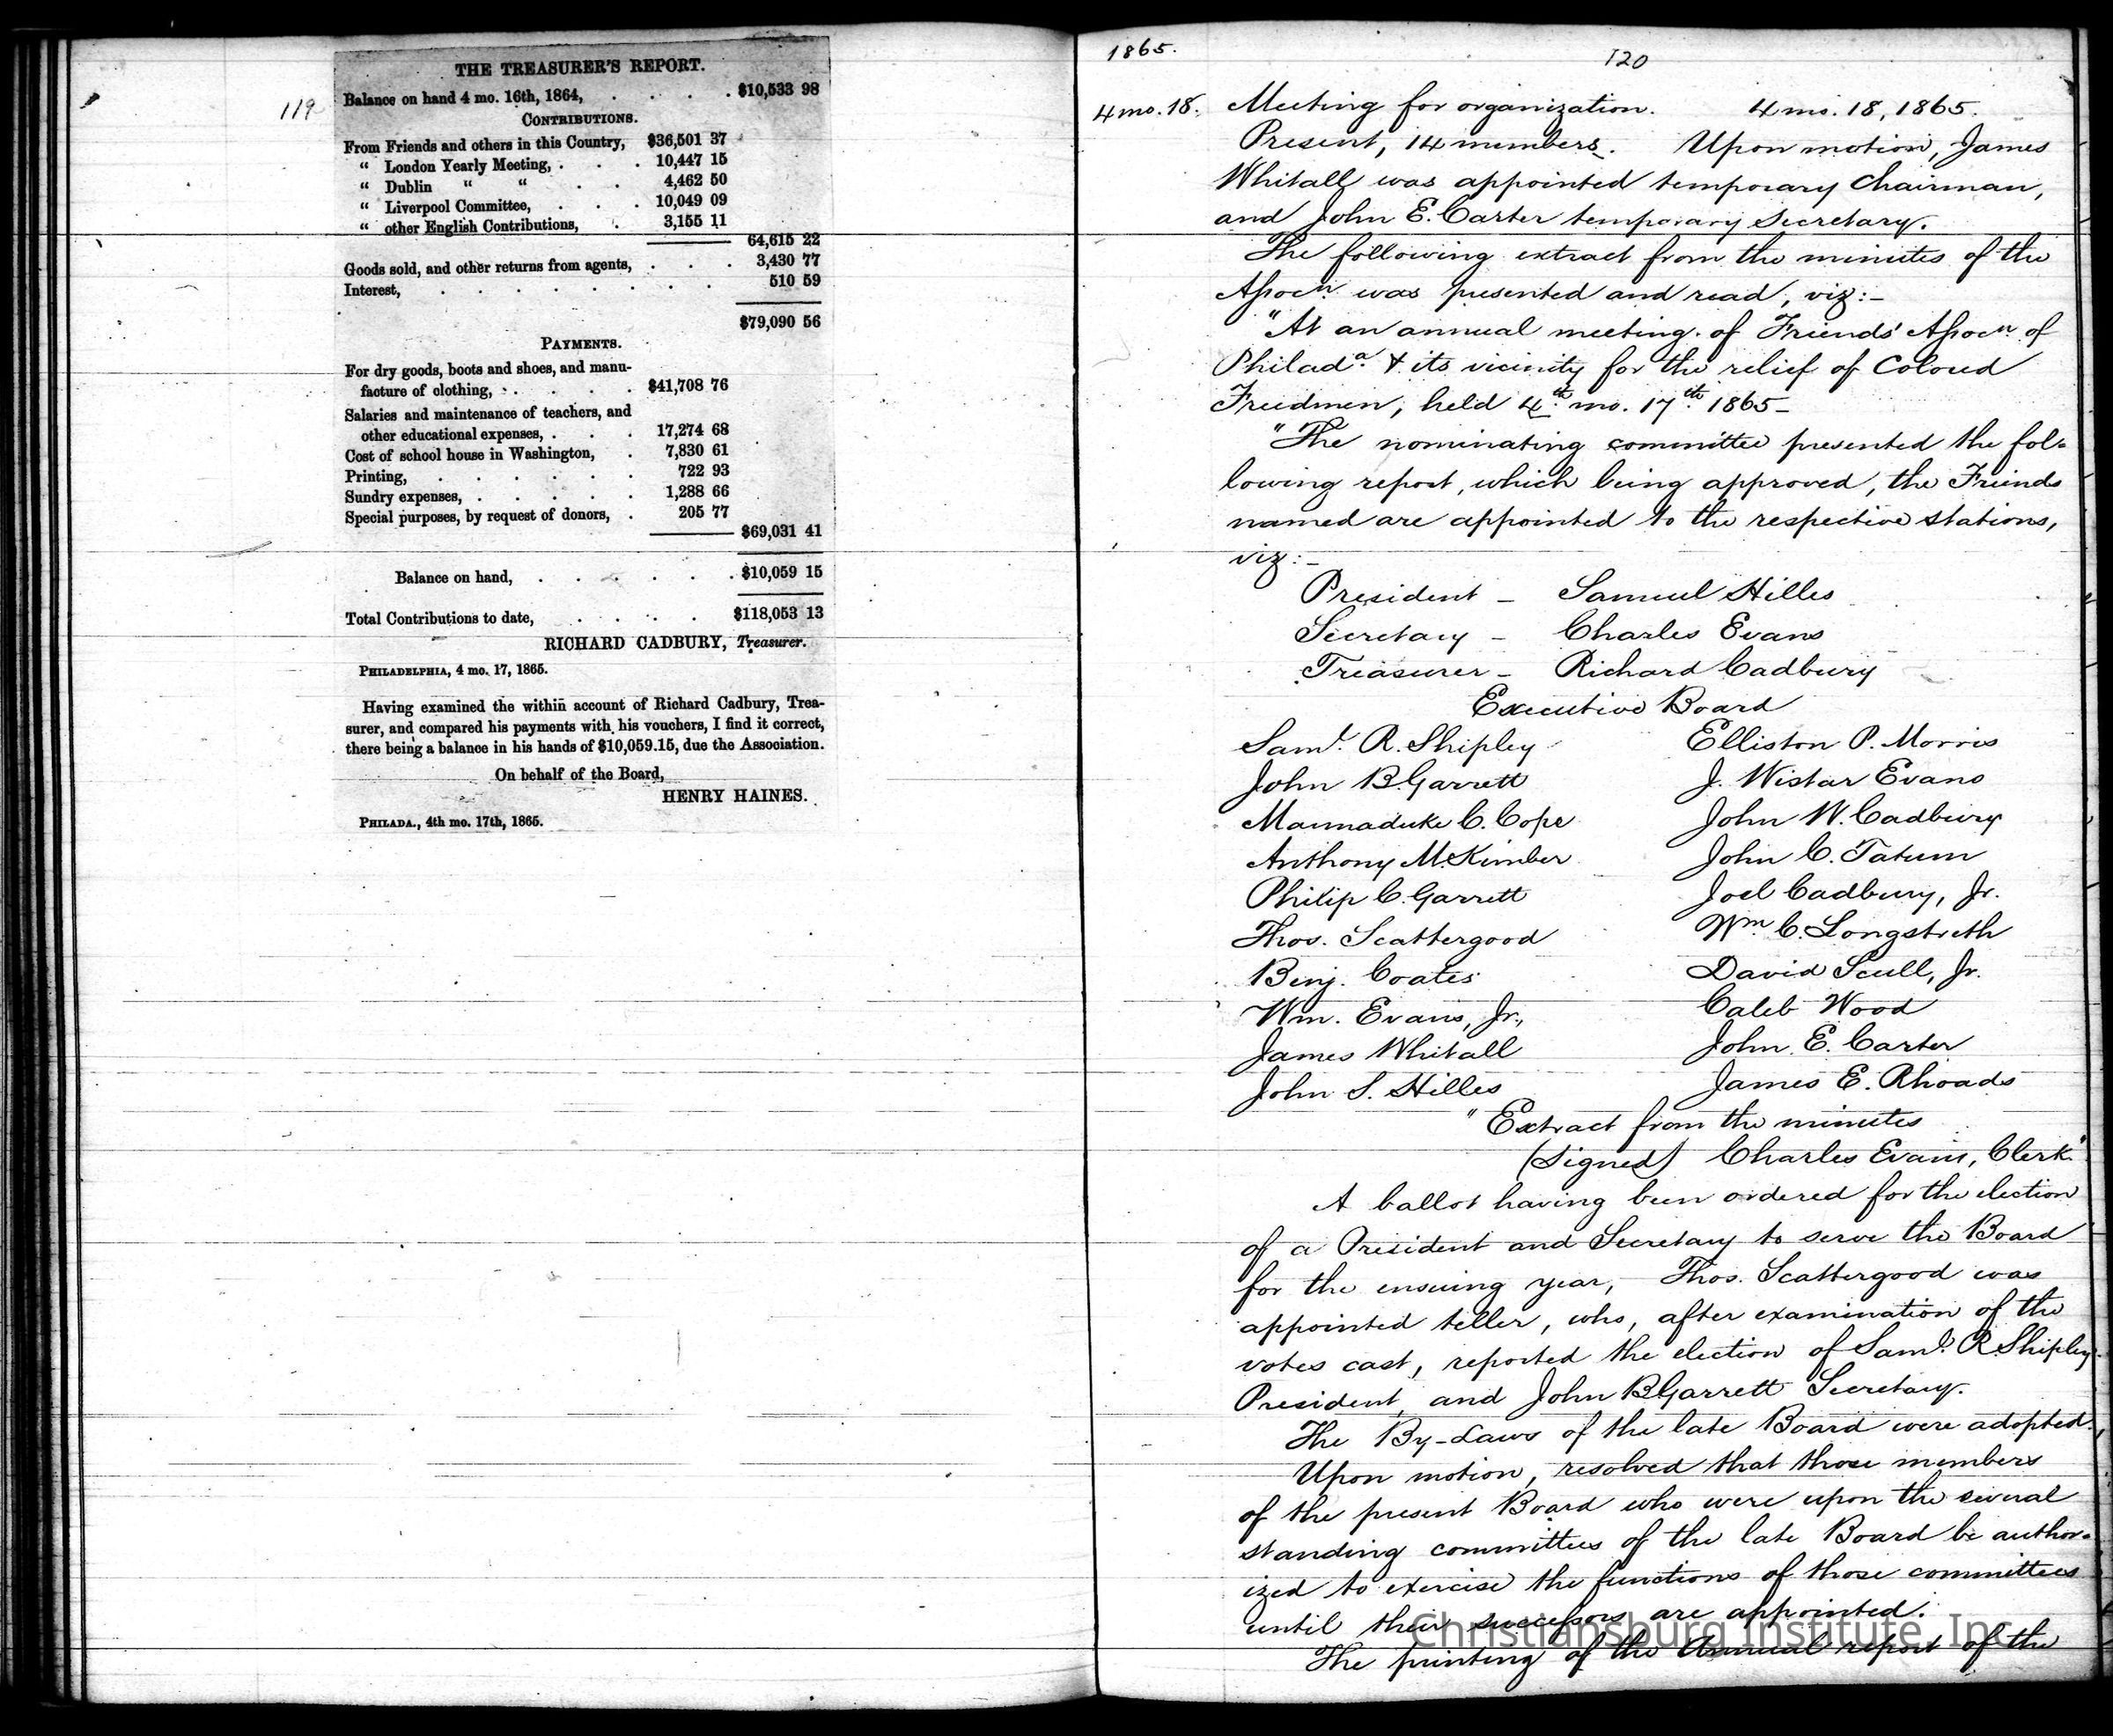 119
THE TREASURER'S REPORT.
Balance on hand 4 mo. 16th, 1864, . . . . $10,533 98
CONTRIBUTIONS.
From Friends and others in this Country, $36,501 37
“ London Yearly Meeting, . . . 10,447 15
“ Dublin “ “ . . 4,462 50
“ Liverpool Committee, . . . 10,049 09
“ other English Contributions, . 3,155 11
64,615 22
Goods sold, and other returns from agents, . . . 3,430 77
Interest, . . . . . . . . 510 59
$79,090 56
PAYMENTS.
For dry goods, boots and shoes, and manu-
facture of clothing, . . . . $41,708 76
Salaries and maintenance of teachers, and
other educational expenses, . . . 17,274 68
Cost of school house in Washington, . 7,830 61
Printing, . . . . . . 722 93
Sundry expenses, . . . . . 1,288 66
Special purposes, by request of donors, . 205 77
$69,031 41
Balance on hand, . . . . . . $10,059 15
Total Contributions to date, . . . . $118,053 13
RICHARD CADBURY, Treasurer.
PHILADELPHIA, 4 mo. 17, 1865.
Having examined the within account of Richard Cadbury, Trea-
surer, and compared his payments with his vouchers, I find it correct,
there being a balance in his hands of $10,059.15, due the Association.
On behalf of the Board,
HENRY HAINES.
PHILADA., 4th mo. 17th, 1865.
1865.
120
4 mo. 18. Meeting for organization. 4 mo. 18, 1865.
Present, 14 members. Upon motion, James
Whitall was appointed temporary Chairman,
and John E. Carter temporary Secretary.
The following extract from the minutes of the
Assocn. was presented and read, viz:-
"At an annual meeting of Friends' Assocn. of
Philada. & its vicinity for the relief of Colored
Freedmen, held 4th. mo. 17th. 1865-
"The nominating committee presented the fol-
lowing report, which being approved, the Friends
named are appointed to the respective stations,
viz:-
President - Samuel Hilles
Secretary - Charles Evans
Treasurer - Richard Cadbury
Executive Board
Saml. R. Shipley Elliston P. Morris
John B. Garrett J. Wistar Evans
Marmaduke C. Cope John W. Cadbury
Anthony M. Kimber John C. Tatum
Philip C. Garrett Joel Cadbury, Jr.
Thos. Scattergood Wm. C. Longstreth
Benj. Coates David Scull, Jr.
Wm. Evans, Jr., Caleb Wood
James Whitall John E. Carter
John S. Hilles James E. Rhoads
"Extract from the minutes
(Signed) Charles Evans, Clerk."
A ballot having been ordered for the election
of a President and Secretary to serve the Board
for the ensuing year, Thos. Scattergood was
appointed teller, who, after examination of the
votes cast, reported the election of Saml. R. Shipley
President, and John B. Garrett Secretary.
The By-Laws of the late Board were adopted.
Upon motion, resolved that those members
of the present Board who were upon the several
standing committees of the late Board be author-
ized to exercise the functions of those committees
until their successors are appointed.
The printing of the Annual report of the
Christiansburg Institute, Inc.